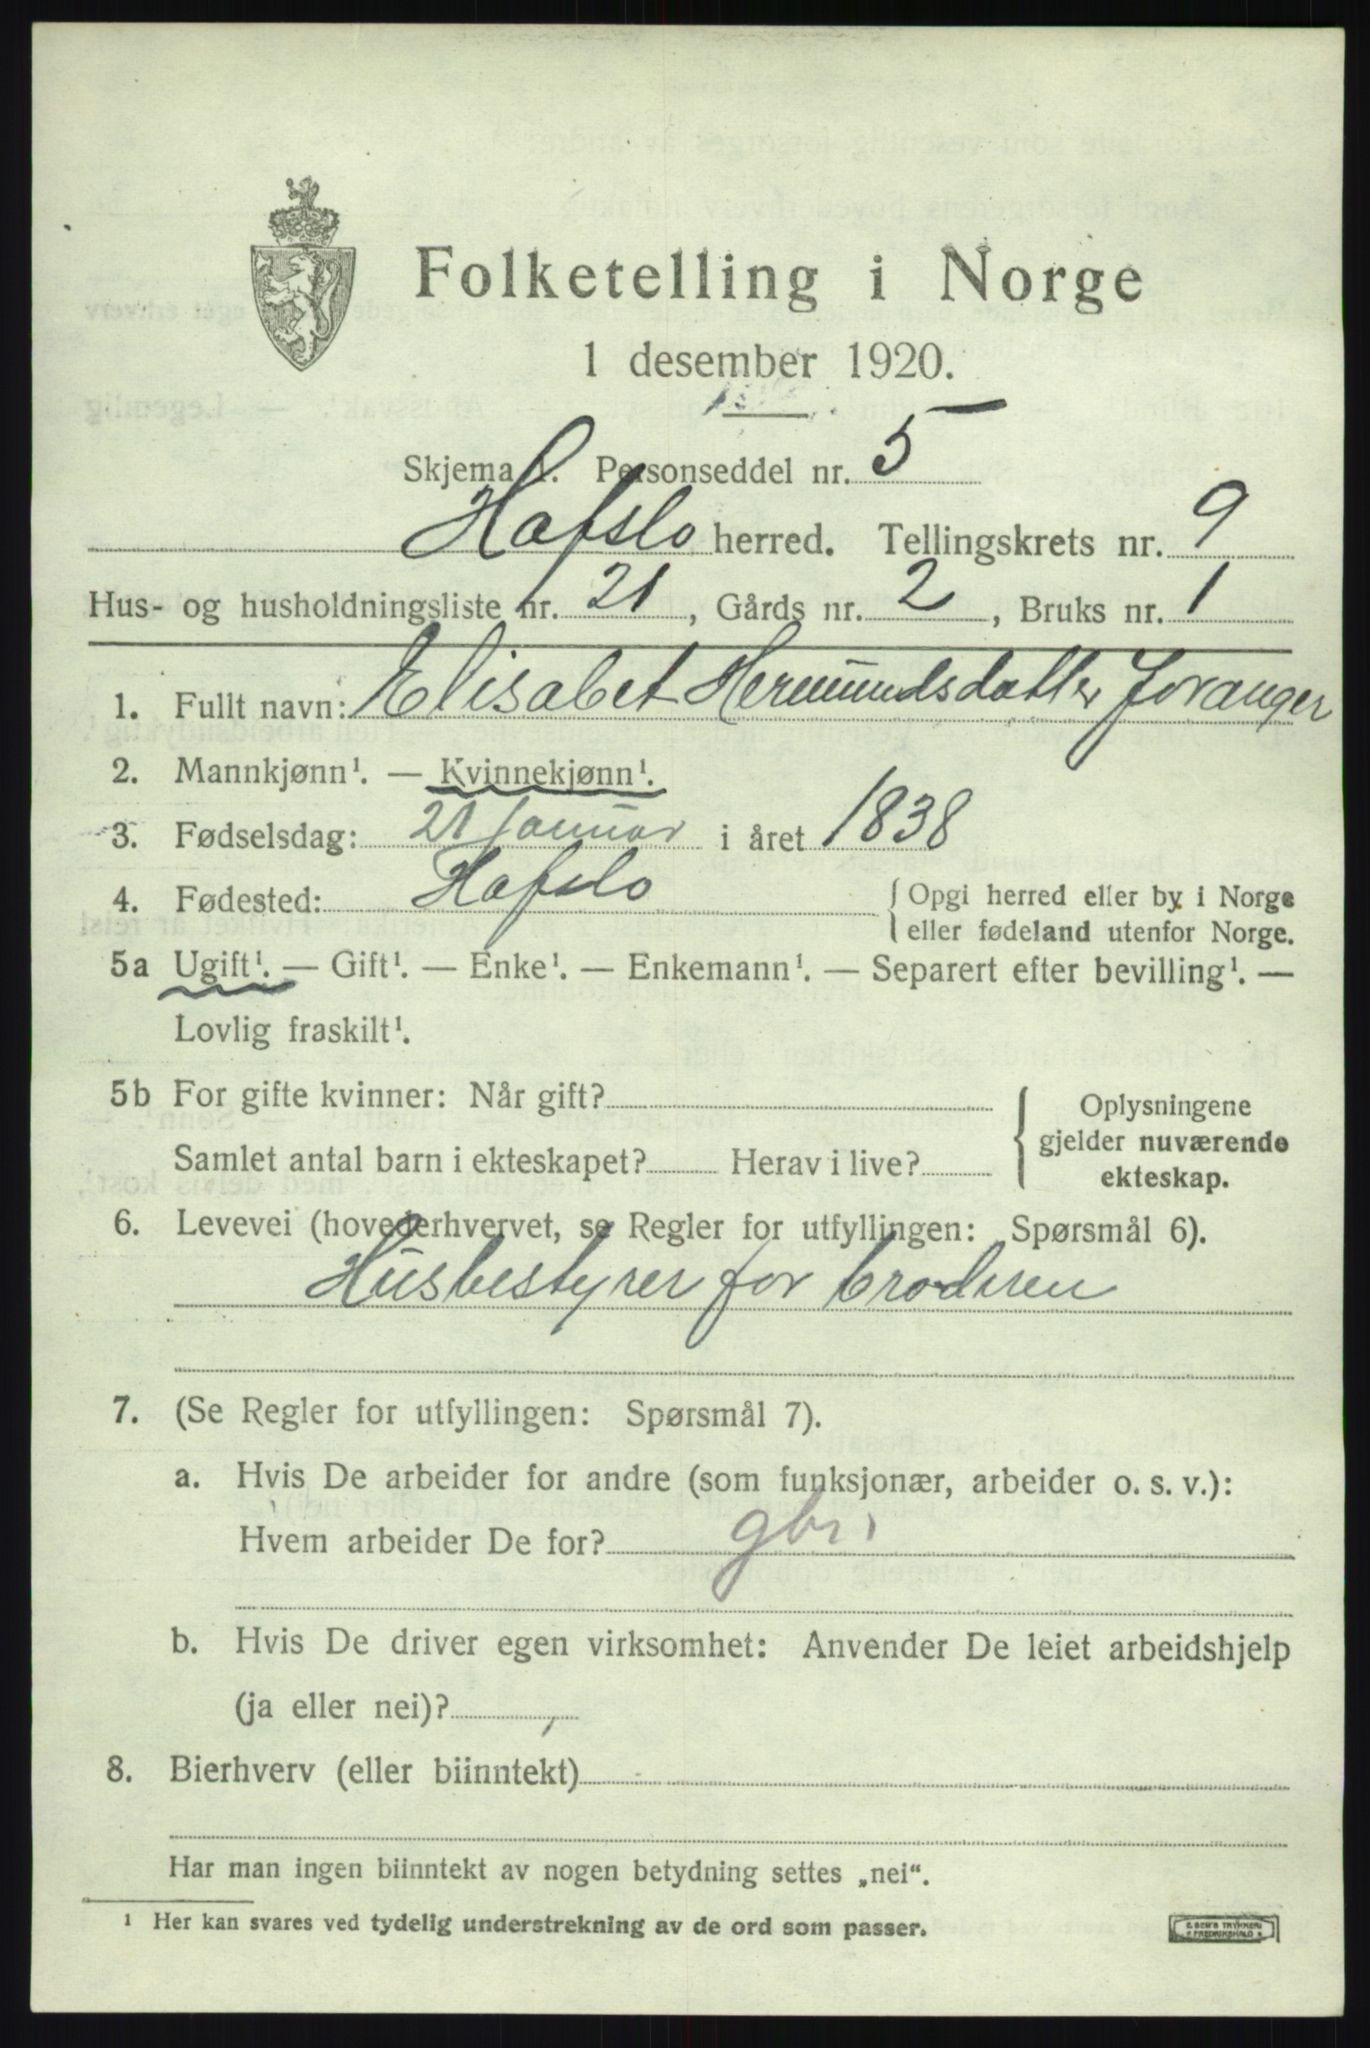 Folketelling i Norge
1 desember 1920.
Skjema 1. Personseddel nr. 5
Hafslo herred. Tellingskrets nr. 9
Hus- og husholdningsliste nr. 21, Gårds nr. 2, Bruks nr. 1
1. Fullt navn: Elisabet Hermundsdatter Joranger
2. Mannkjønn¹. — Kvinnekjønn¹.
3. Fødselsdag: 21 Januar i året 1838
4. Fødested: Hafslo { Opgi herred eller by i Norge
eller fødeland utenfor Norge.
5a Ugift¹. — Gift¹. — Enke¹. — Enkemann¹. — Separert efter bevilling¹. —
Lovlig fraskilt¹.
5b For gifte kvinner: Når gift? { Oplysningene
gjelder nuværende
Samlet antal barn i ekteskapet? Herav i live?
ekteskap.
6. Levevei (hovederhvervet, se Regler for utfyllingen: Spørsmål 6).
Husbestyrer for broderen
7. (Se Regler for utfyllingen: Spørsmål 7).
a. Hvis De arbeider for andre (som funksjonær, arbeider o. s. v.):
Hvem arbeider De for? gbr.
b. Hvis De driver egen virksomhet: Anvender De leiet arbeidshjelp
(ja eller nei)?
8. Bierhverv (eller biinntekt)
Har man ingen biinntekt av nogen betydning settes „nei“.
¹ Her kan svares ved tydelig understrekning av de ord som passer.